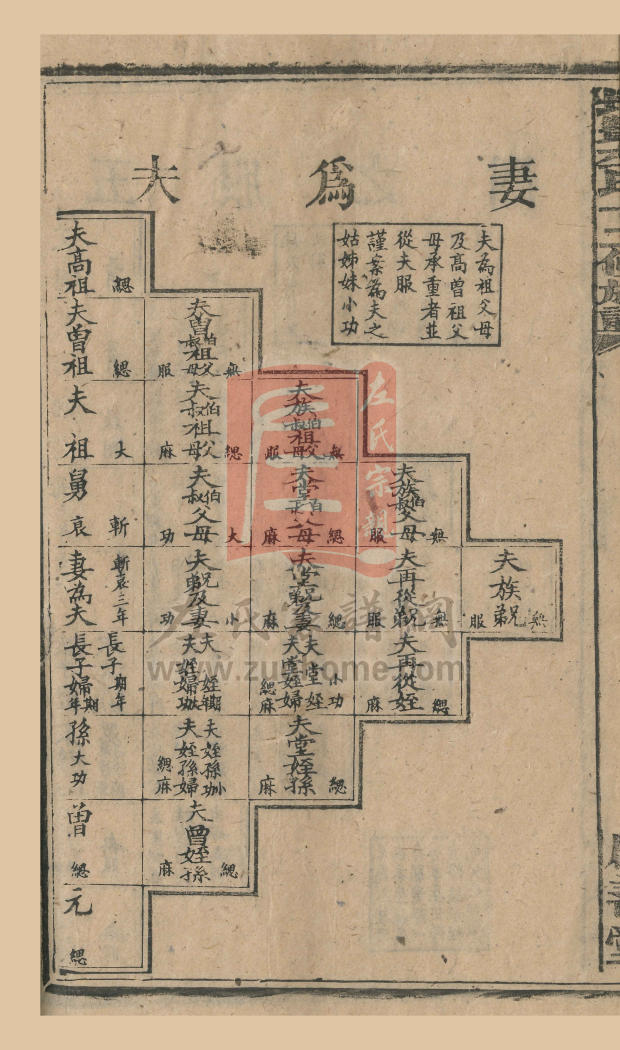 妻為夫
夫為祖父母
及高曾祖父
母承重者並
從夫服
謹案為夫之
姑姊妹小功
夫族兄弟 無服
夫族伯叔父母 無服
夫再從兄弟 無服
夫再從姪 緦麻
夫族伯叔祖父母 無服
夫堂伯叔父母 緦麻
夫堂兄弟及妻 緦麻
夫堂姪 小功
夫堂姪婦 緦麻
夫堂姪孫 緦麻
夫曾伯叔祖父母 無服
夫伯叔祖父母 緦麻
夫伯叔父母 大功
夫兄弟及妻 小功
夫姪 期
夫姪婦
夫姪孫 小功
夫姪孫婦 緦麻
夫曾姪孫 緦麻
夫高祖 緦
夫曾祖 緦
夫祖 大
舅 斬哀
妻為夫 斬哀三年
長子 期年
長子婦 期年
孫 大功
曾 緦
元 緦
左氏宗譜
左氏宗譜網